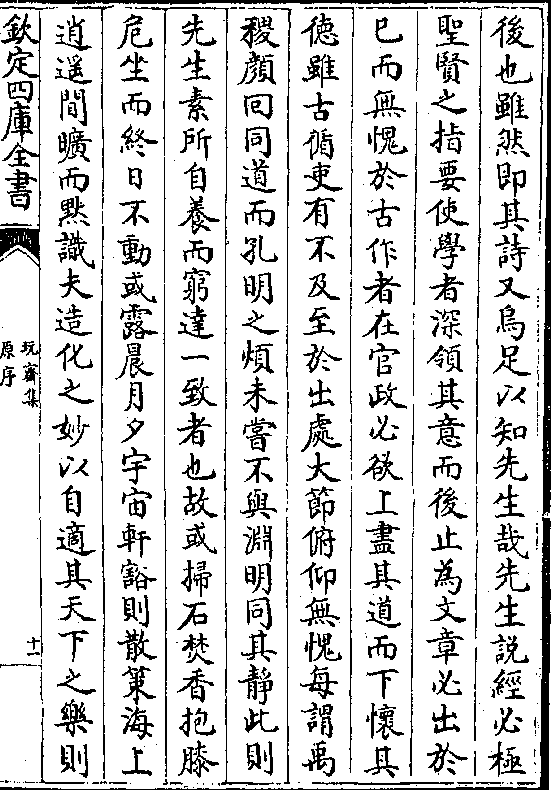 後也雖然即其詩又烏足以知先生哉先生說經必極
聖賢之指要使學者深領其意而後止為文章必出於
已而無愧於古作者在官政必欲上盡其道而下懷其
德雖古循吏有不及至於出處大節俯仰無愧每謂禹
稷顔回同道而孔明之煩未嘗不與淵明同其靜此則
先生素所自養而窮達一致者也故或掃石焚香抱膝
危坐而終日不動或露晨月夕宇宙軒豁則散策海上
逍遥間曠而黙識夫造化之妙以自適其天下之樂則
欽定四庫全書
玩齋集
原序
十一